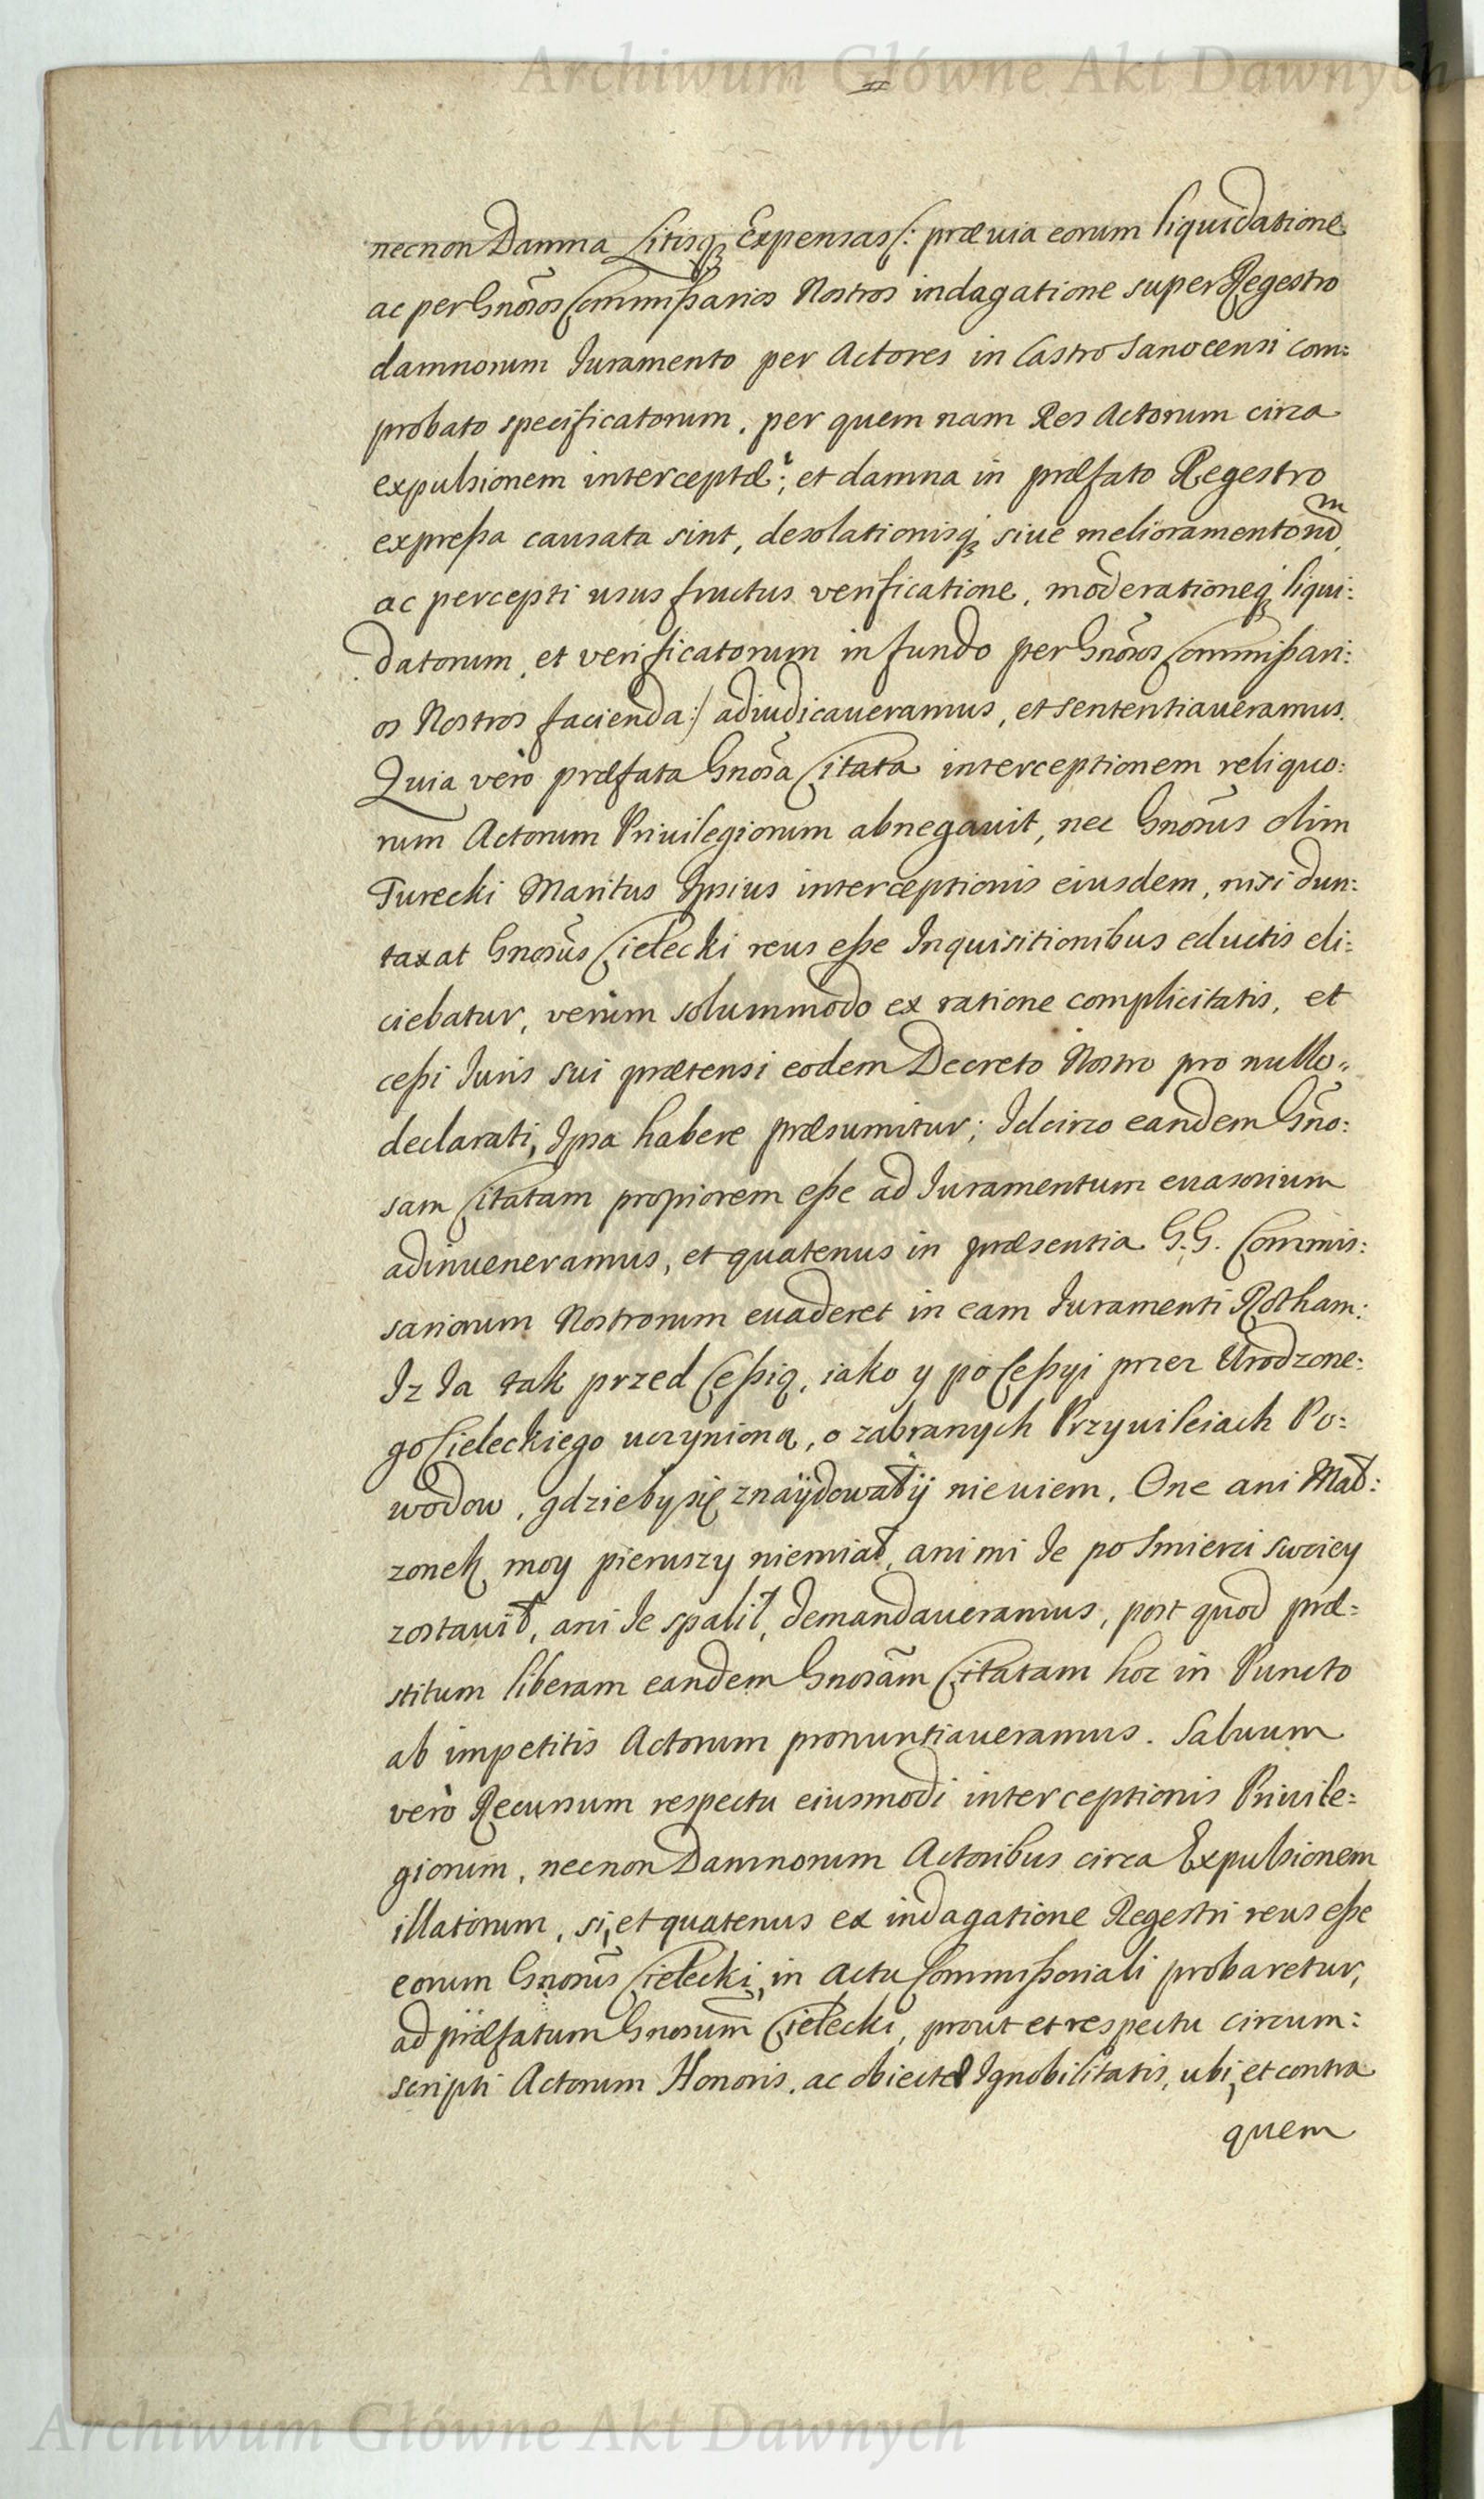 Archiwum Główne Akt Dawnych
necnon Damna Litisq₃ Expensas (: prævia eorum liquidatione
ac per Gnõsos Commißarios Nostros indagatione super Regestro
damnorum Iuramento per Actores in Castro Sanocensi com:
probato specificatorum, per quem nam Res Actorum circa
expulsionem interceptæ, et damna in præfato Regestro
expreßa causata sint, desolationisq₃ siue melioramentorum
ac percepti usus fructus verificatione, moderationeq₃ liqui:
datorum, et verificatorum in fundo per Gnõsos Commißari:
os Nostros facienda:) adiudicaueramus, et sententiaueramus.
Quia verò præfata Gnõsa Citata interceptionem reliquo:
rum Actorum Priuilegiorum abnegauit, nec Gnõsus olim
Turecki Maritus Ipsius interceptionis eiusdem, nisi dun:
taxat Gnosũs Cielecki reus eße Inquisitionibus eductis eli:
ciebatur, verùm solummodo ex ratione complicitatis, et
ceßi Iuris sui prætensi eodem Decreto Nostro pro nullo
declarati, Ipsa habere præsumitur; Idcirco eandem Gño:
sam Citatam propiorem eße ad Iuramentum euasorium
adinueneramus, et quatenus in præsentia G.G. Commis:
sariorum Nostrorum euaderet in eam Iuramenti Rotham:
Iz Ia tak przed Ceßią, iako y po Ceßyi przez Urodzone:
go Cieleckiego uczynioną, o zabranych Przyuileiach Po:
wodow, gdzieby się znaÿdowałÿ nieuiem, One ani Mał:
zonek moy pieruszy niemiał, ani mi Ie po Smierci swoiey
zostauił, ani Ie spalił, demandaueramus, post quod præ:
stitum liberam eandem Gnosãm Citatam hoc in Puncto
ab impetitis Actorum pronuntiaueramus. Saluum
verò Recursum respectu eiusmodi interceptionis Priuile:
giorum, necnon Damnorum Actoribus circa Expulsionem
illatorum, si, et quatenus ex indagatione Regestri reus eße
eorum Gnosũs Cielecki, in Actu Commißoriali probaretur,
ad præfatum Gnosum̃ Cielecki, prout et respectu circum:
scripti Actorum Honoris, ac obiectæ Ignobilitatis, ubi, et contra
quem
Archiwum Główne Akt Dawnych